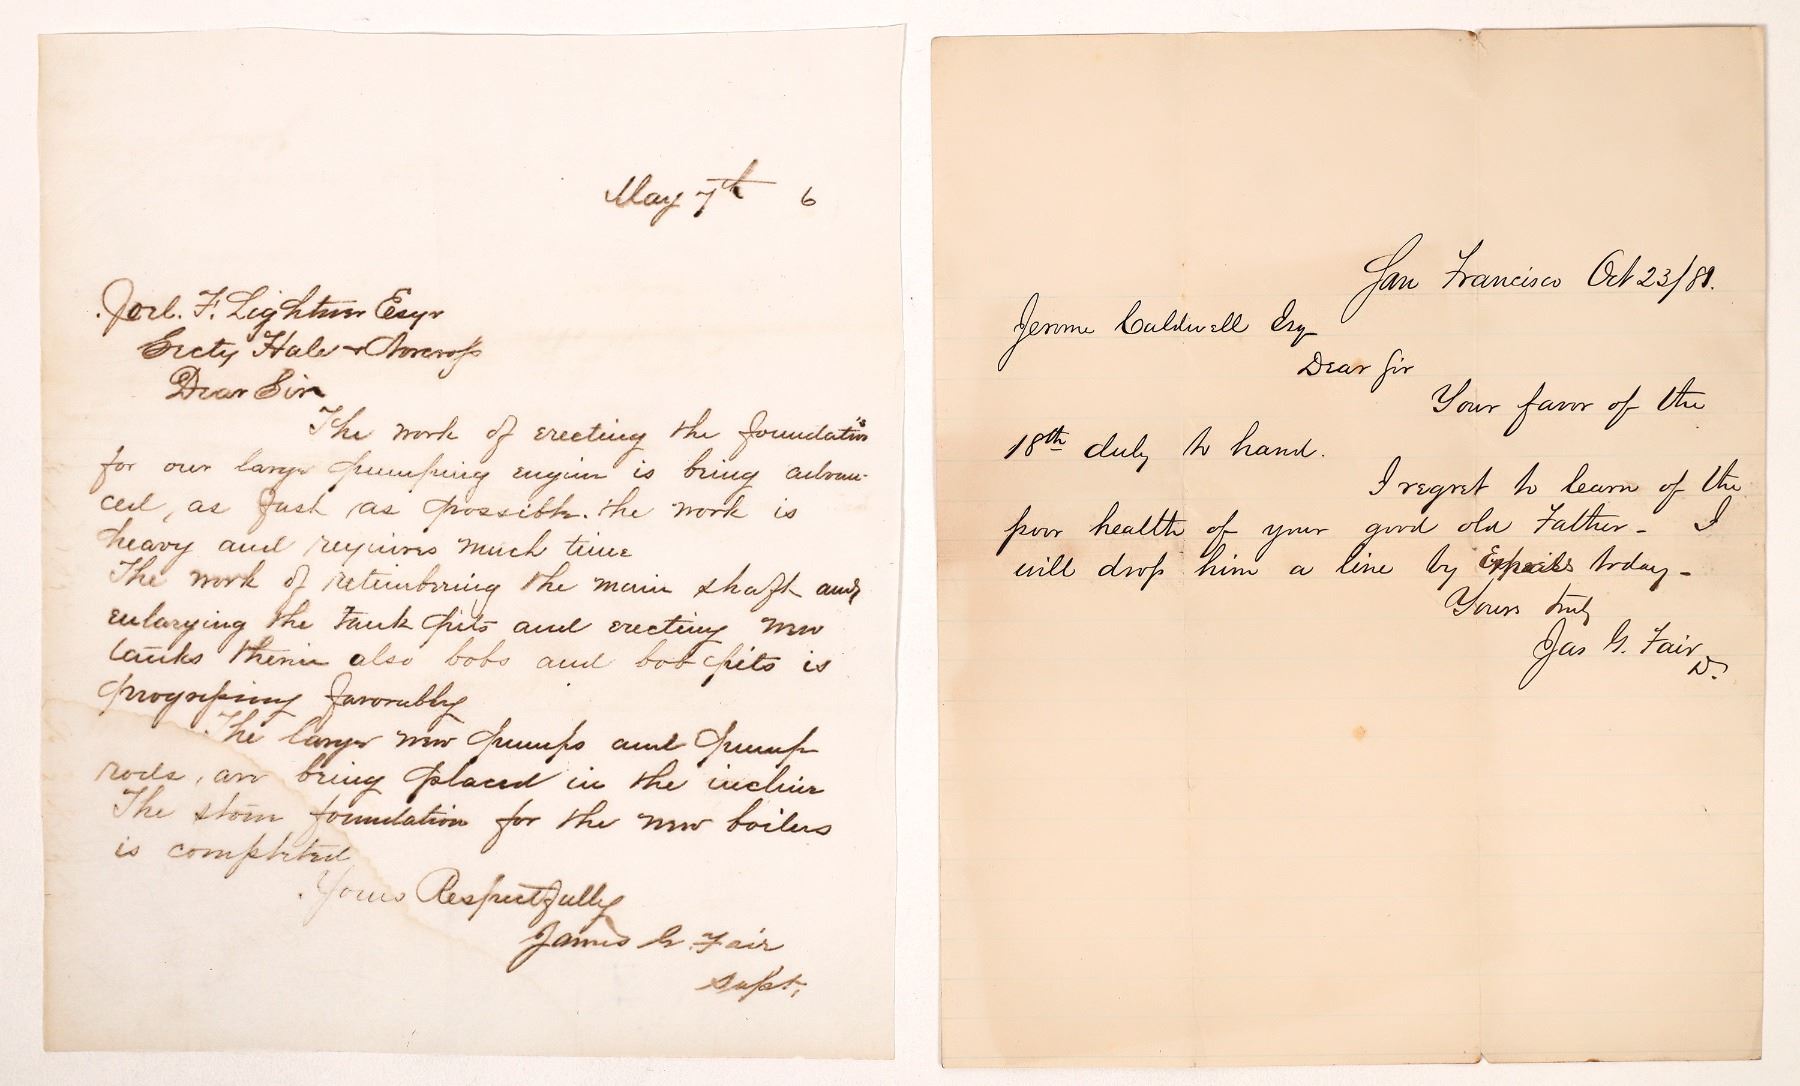 May 7th 6
Joel. F. Lightner Esqr
Secty Hale & Norcross
Dear Sir
The work of erecting the foundations
for our large pumping engine is being advan-
ced, as fast as possible. the work is
heavy and requires much time
The work of retimbering the main shaft and
enlarging the tank pits and erecting new
tanks therein also bobs and bob pits is
progressing favorably
The large new pumps and pump
rods, are being placed in the incline
The stone foundation for the new boilers
is completed
Yours Respectfully
James G. Fair
Supt,
San Francisco Oct 23/80.
Jerome Caldwell Esq
Dear Sir
Your favor of the
18th duly to hand.
I regret to learn of the
poor health of your good old Father - I
will drop him a line by today -
Yours truly
Jas G. Fair
D.